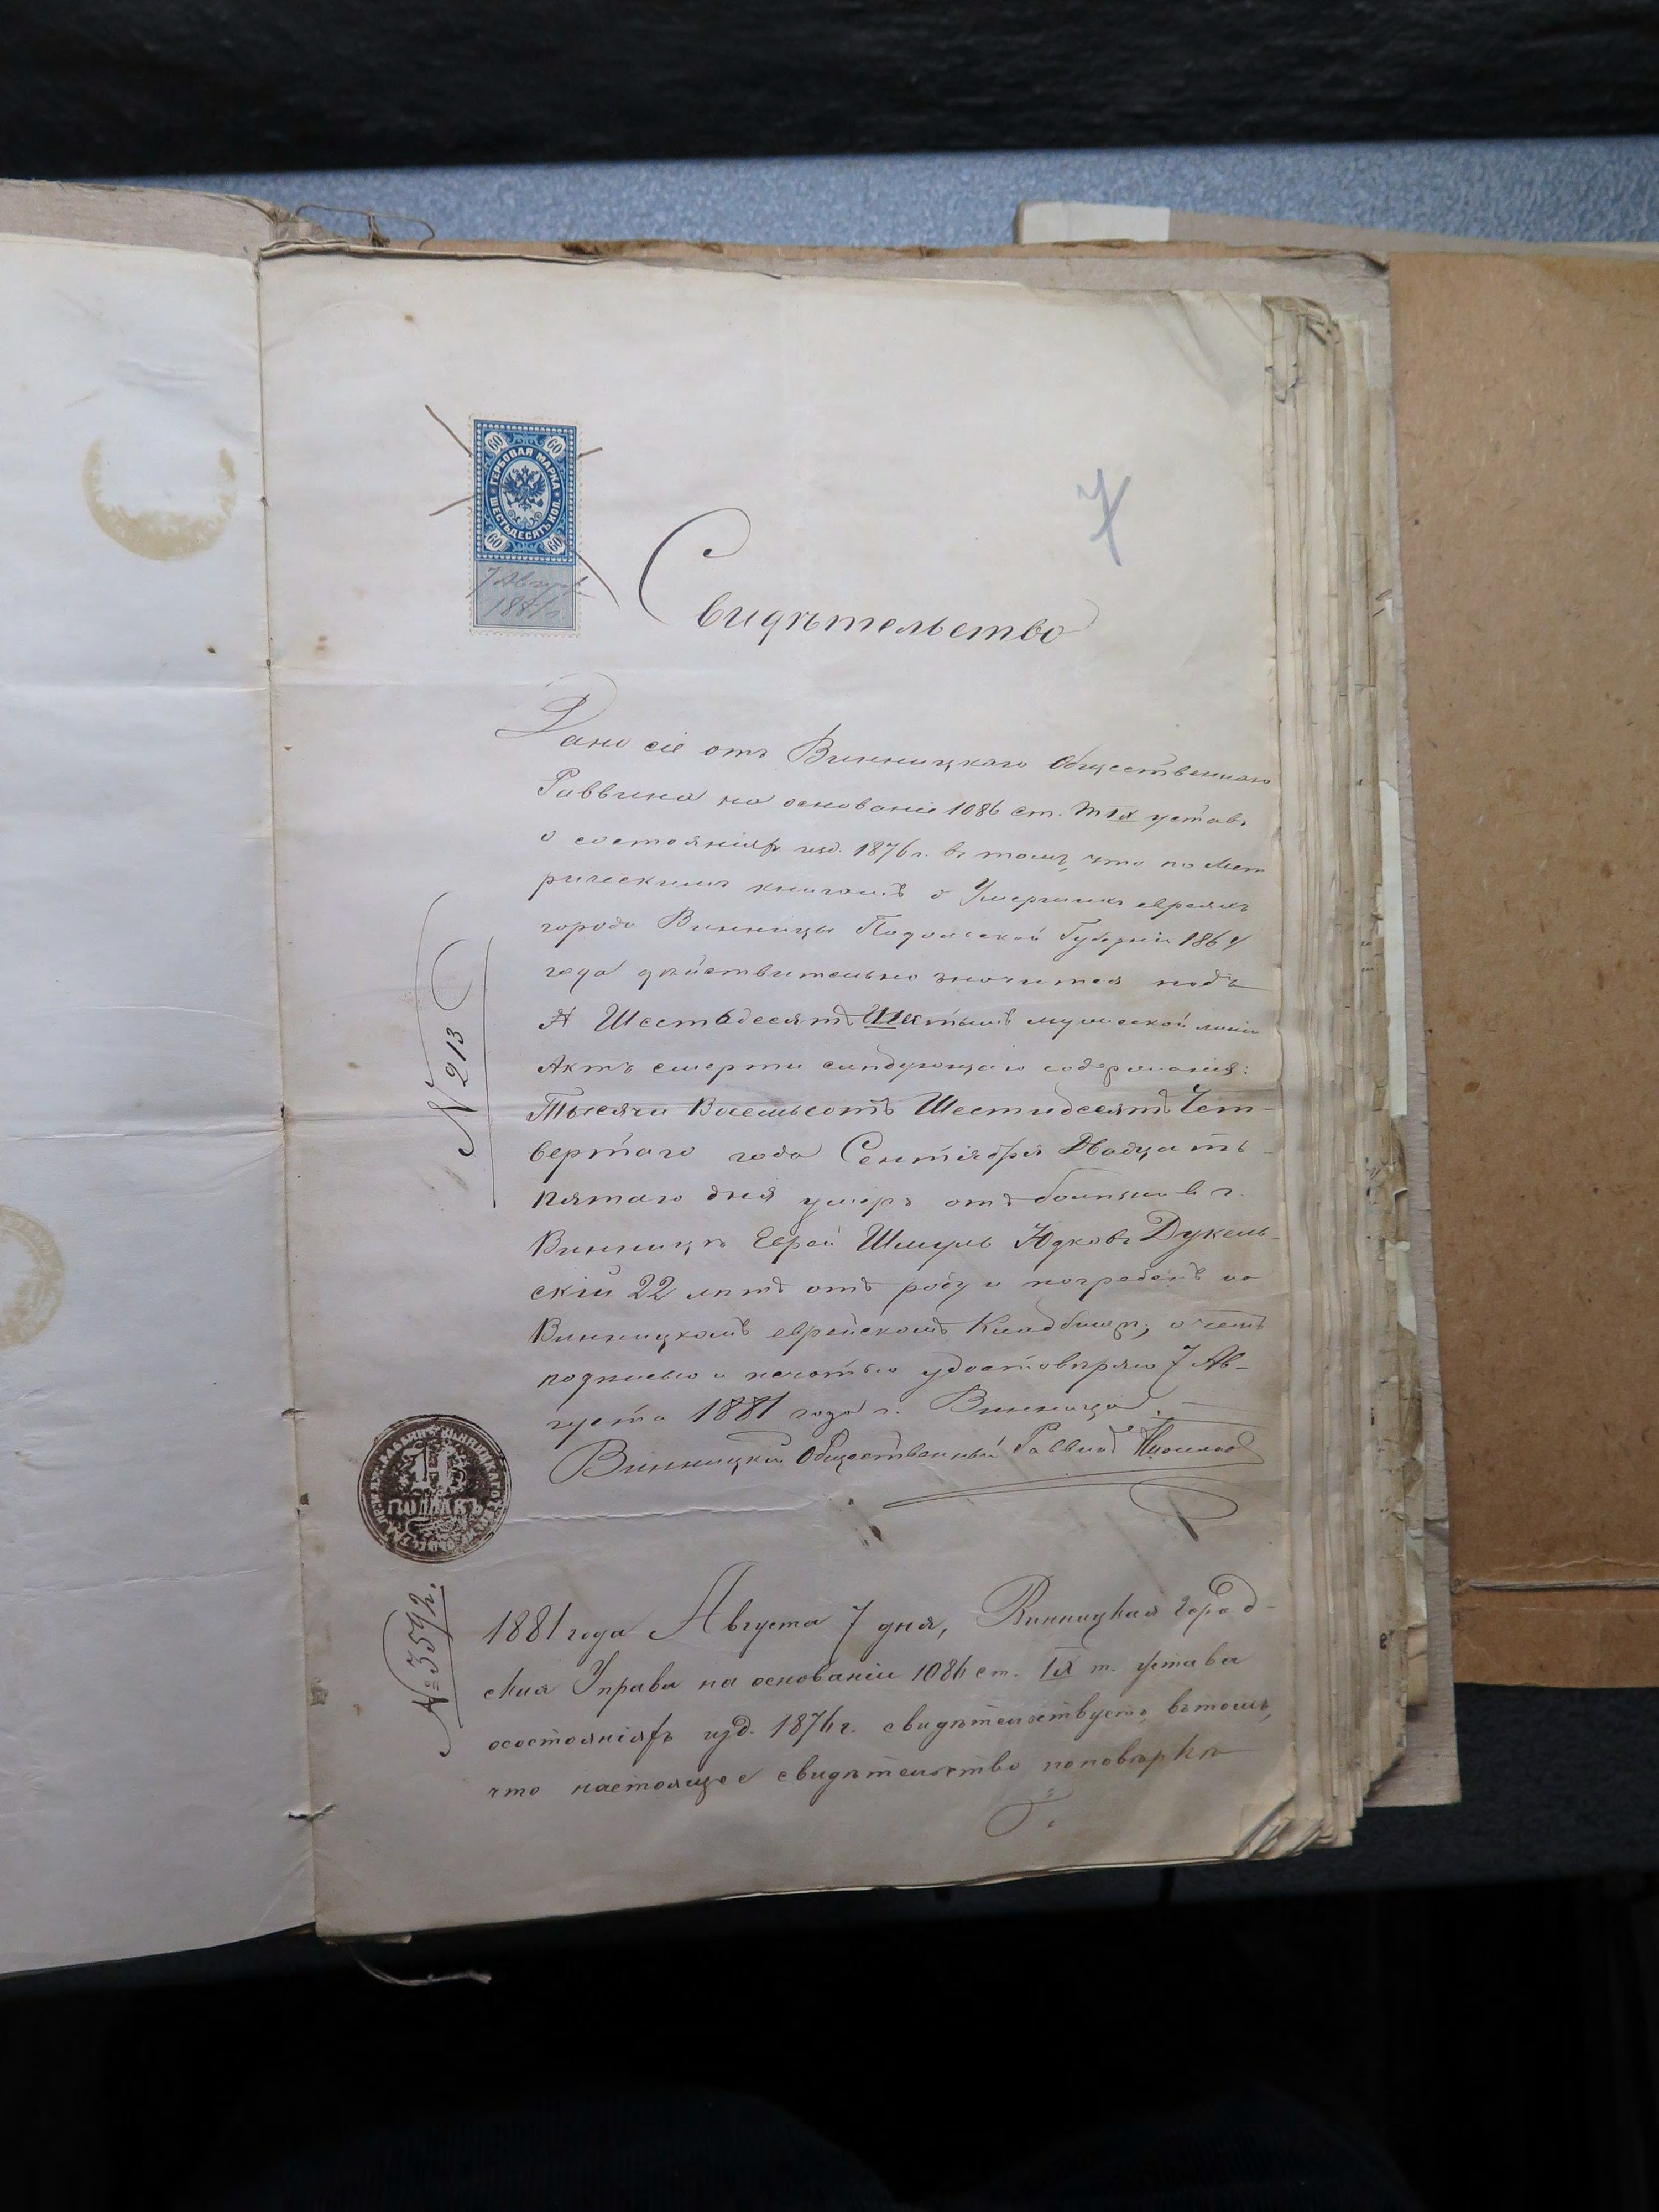 60 60
ГЕРБОВАЯ МАРКА
ШЕСТЬДЕСЯТЪ КОП.
60 60
7 Августа
1881 г
7
Свидѣтельство
Дано сіе отъ Винницкаго Общественнаго
Раввина на основаніе 1086 ст. т IX уставъ
о состояніяхъ изд. 1876 г. въ томъ, что по Мет
рическимъ книгамъ о Умершихъ евреяхъ
города Винницы Подольской Губерніи 1864
года дѣйствительно значится подъ
№ Шестьдесятъ Шестымъ мужеской линіи
Актъ смерти слѣдующаго содержанія:
Тысяча Восемьсотъ Шестидесятъ Чет-
вертаго года Сентября Двадцать
пятаго дня умеръ отъ болѣзни в г.
Винницѣ Еврей Шмуль Юдковъ Дукель-
скій 22 лѣтъ отъ роду и погребенъ на
Винницкомъ еврейскомъ Кладбищѣ, о чемъ
подписью и печатью удостовѣряю 7 Ав-
густа 1881 года г. Винница.
Винницкій Общественный Раввинъ
N 213
1881 года Августа 7 дня, Винницкая Город-
ская Управа на основаніи 1086 ст. IX т. Устава
осостояніяхъ изд. 1876 г. свидѣтельствуетъ въ томъ,
что настоящее свидѣтельство поповѣркѣ
№ 3592.